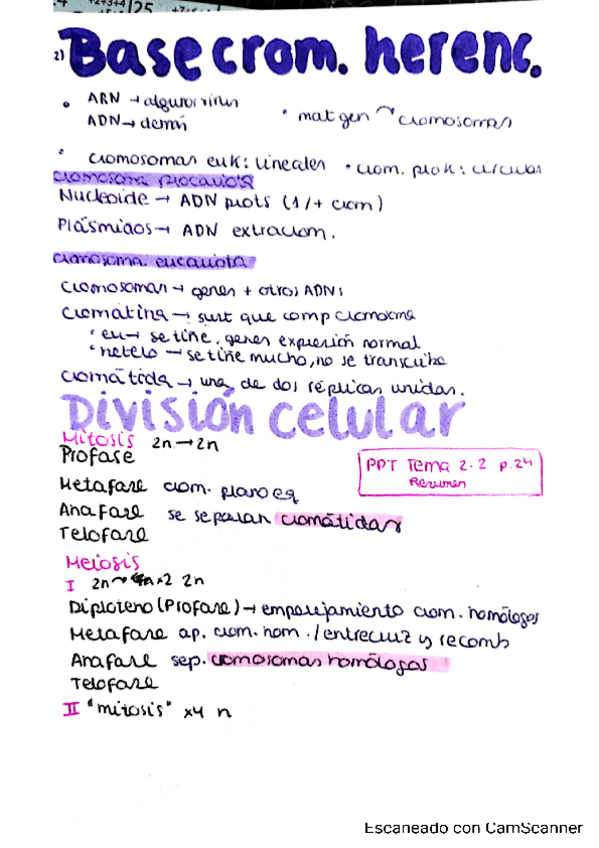 2) Base crom. herenc.
• ARN → algunos virus
ADN → demás
• mat gen ⤳ cromosomas
• cromosomas euk: lineales • crom. prok: circular
cromosoma procariota
Nucleoide → ADN prots (1/+ crom)
Plásmidos → ADN extracrom.
cromosoma eucariota
cromosomas → genes + otros ADNs
cromatina → sust que comp cromosoma
• eu → se tiñe, genes expresión normal
• hetero → se tiñe mucho, no se transcribe
cromátida → una de dos réplicas unidas.
División celular
Mitosis 2n → 2n
Profase
PPT Tema 2.2 p.24
Resumen
Metafase crom. plano eq
Anafase se separan cromátidas
Telofase
Meiosis
I 2n ⤳ x2 2n
Diploteno (Profase) → emparejamiento crom. homólogos
Metafase ap. crom. hom. / entrecruz y recomb
Anafase sep. cromosomas homólogos
Telofase
II "mitosis" x4 n
Escaneado con CamScanner